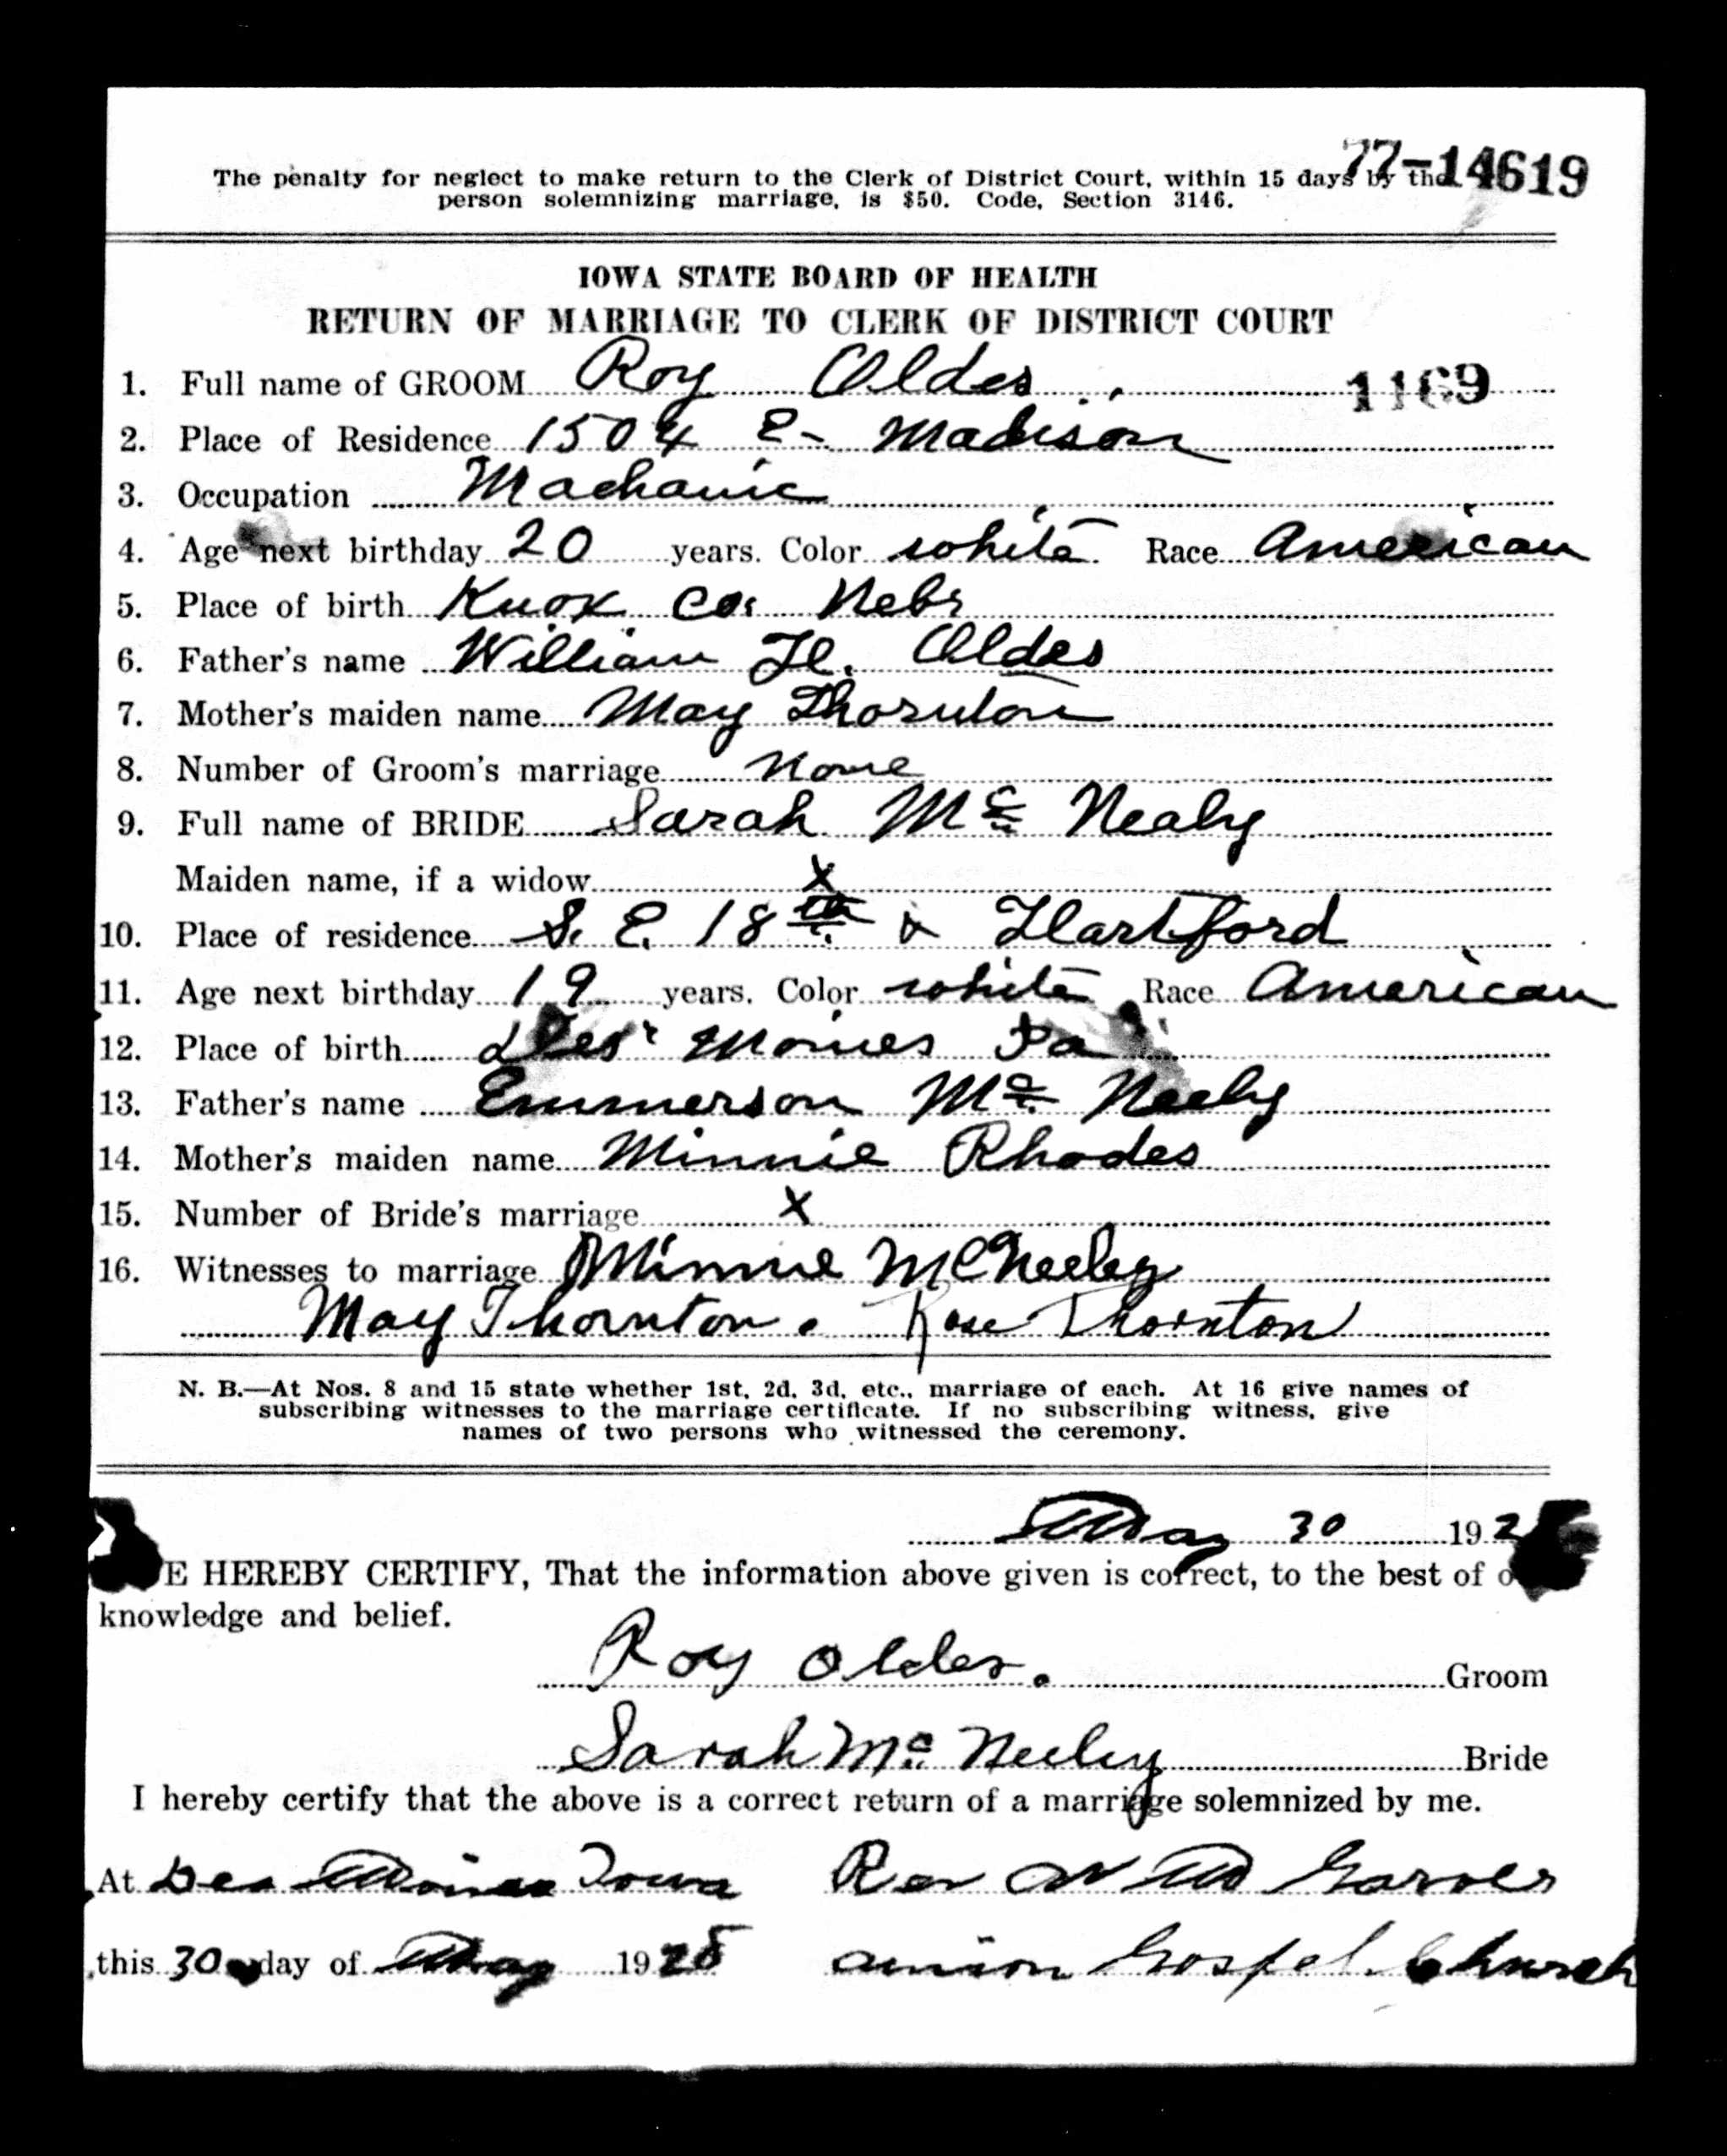 77-14619
The penalty for neglect to make return to the Clerk of District Court, within 15 days by the
person solemnizing marriage, is $50. Code, Section 3146.
IOWA STATE BOARD OF HEALTH
RETURN OF MARRIAGE TO CLERK OF DISTRICT COURT
1. Full name of GROOM Roy Oldes 1169
2. Place of Residence 1504 E- Madison
3. Occupation Machanic
4. Age next birthday 20 years. Color white Race American
5. Place of birth Knox Co. Nebr
6. Father's name William H. Oldes
7. Mother's maiden name May Thornton
8. Number of Groom's marriage None
9. Full name of BRIDE Sarah Mc Nealy
Maiden name, if a widow X
10. Place of residence S. E. 18th & Hartford
11. Age next birthday 19 years. Color white Race American
12. Place of birth Des Moines Ia
13. Father's name Emmerson Mc Neely
14. Mother's maiden name Minnie Rhodes
15. Number of Bride's marriage X
16. Witnesses to marriage Minnie McNeeley
May Thornton. Rose Thornton
N. B.—At Nos. 8 and 15 state whether 1st, 2d, 3d, etc., marriage of each. At 16 give names of
subscribing witnesses to the marriage certificate. If no subscribing witness, give
names of two persons who witnessed the ceremony.
May 30 192
E HEREBY CERTIFY, That the information above given is correct, to the best of o
knowledge and belief.
Roy Oldes. Groom
Sarah Mc Neeley Bride
I hereby certify that the above is a correct return of a marriage solemnized by me.
At Des Moines Iowa Rev Garver
this 30 day of May 1928 Union Gospel Church